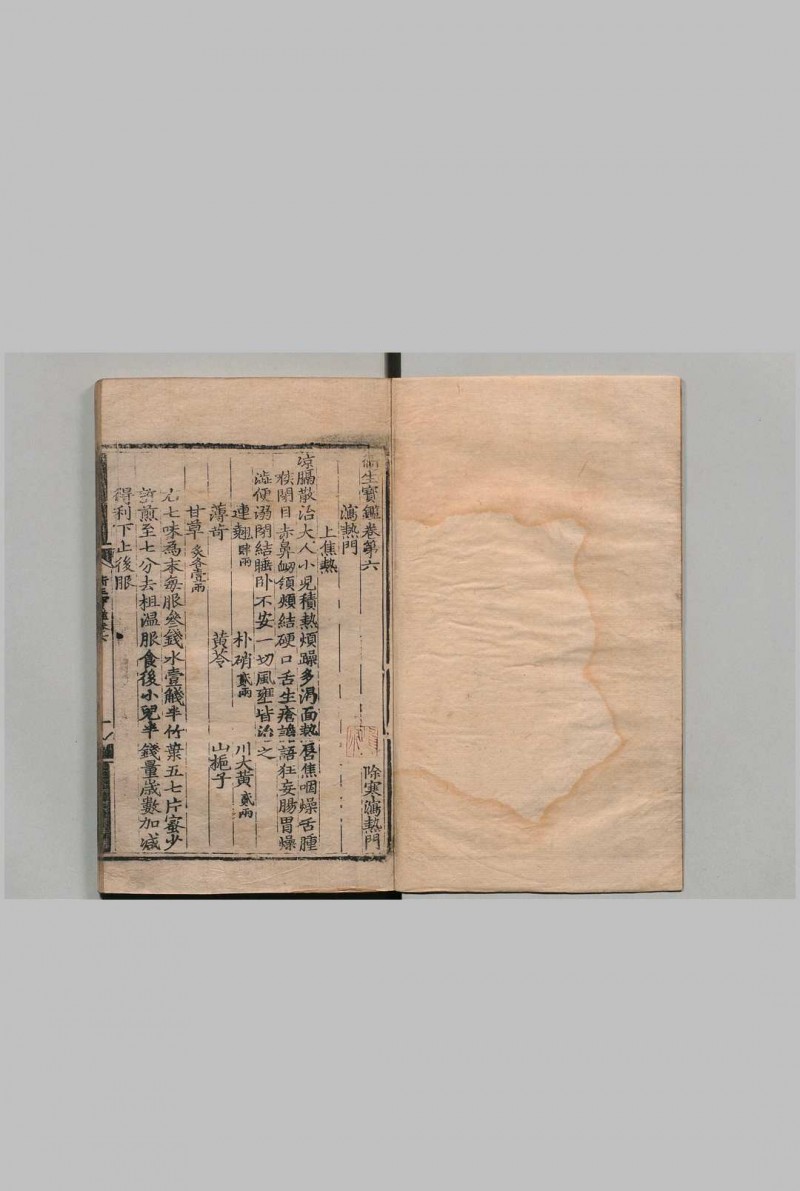 衛生寳鑑卷第六　除寒瀉熱門
瀉熱門
上焦熱
凉膈散治大人小兒積熱煩躁多渴面熱唇焦咽燥舌腫
喉閉目赤鼻衂頷頰結硬口舌生瘡譫語狂妄腸胃燥
澁便溺閉結睡卧不安一切風壅皆治之
連翹 肆兩　朴硝 貳兩　川大黄 貳兩
薄荷　黄芩　山梔子
甘草 炙各壹兩
七味爲末每服叁錢水壹觥半竹葉五七片蜜少
許煎至七分去柤温服食後小兒半錢量歲數加减
得利下止後服